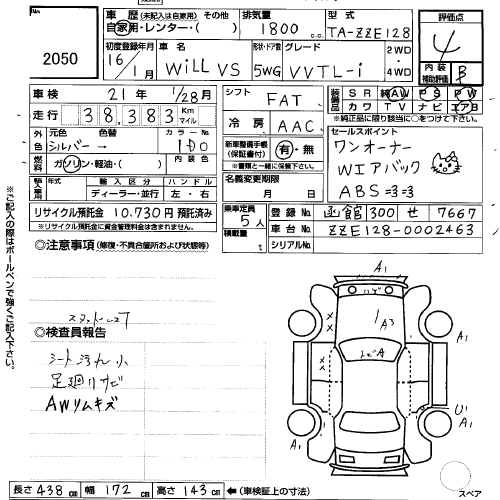 No.
2050
車歴 (未記入は自家用) その他
自家用・レンター・( )
排気量
1800 c.c.
型式
TA-ZZE128
評価点
4
初度登録年月
16/1月
車名
WiLL VS
形状・ドア数
5WG
グレード
VVTL-i
2WD
4WD
内装
補助評価
B
車検
21年 1/28月
走行
38,383 Km
マイル
シフト
FAT
冷房
AAC
装備品
SR 純AW PS PW
カワ TV ナビ エアB
※純正品に限り該当に○をつけて下さい。
外色
元色
シルバー
色替
カラーNo.
1D0
内装色
燃料
ガソリン・軽油・( )
新車整備手帳
(保証書付)
有・無
※書類と一緒に保管下さい。
セールスポイント
ワンオーナー
Wエアバック
ABS
輸入車用
年式
輸入区分
ディーラー・並行
ハンドル
左・右
名義変更期限
月 日
リサイクル預託金 10,730円 預託済み
※リサイクル預託金に資金管理料金は含まれません。
乗車定員
5人
積載量
t
登録No.
函館 300 せ 7667
車台No.
ZZE128-0002463
シリアルNo.
◎注意事項 (修復・不具合箇所および状態等)
◎検査員報告
シート汚れ小
足廻りサビ
AWリムキズ
※ご記入の際はボールペンで強くご記入下さい。
A1
ハゲ
1A3
A1
A1
U1
A1
A1
スペア
長さ 438cm 幅 172cm 高さ 143cm ←(車検証上の寸法)